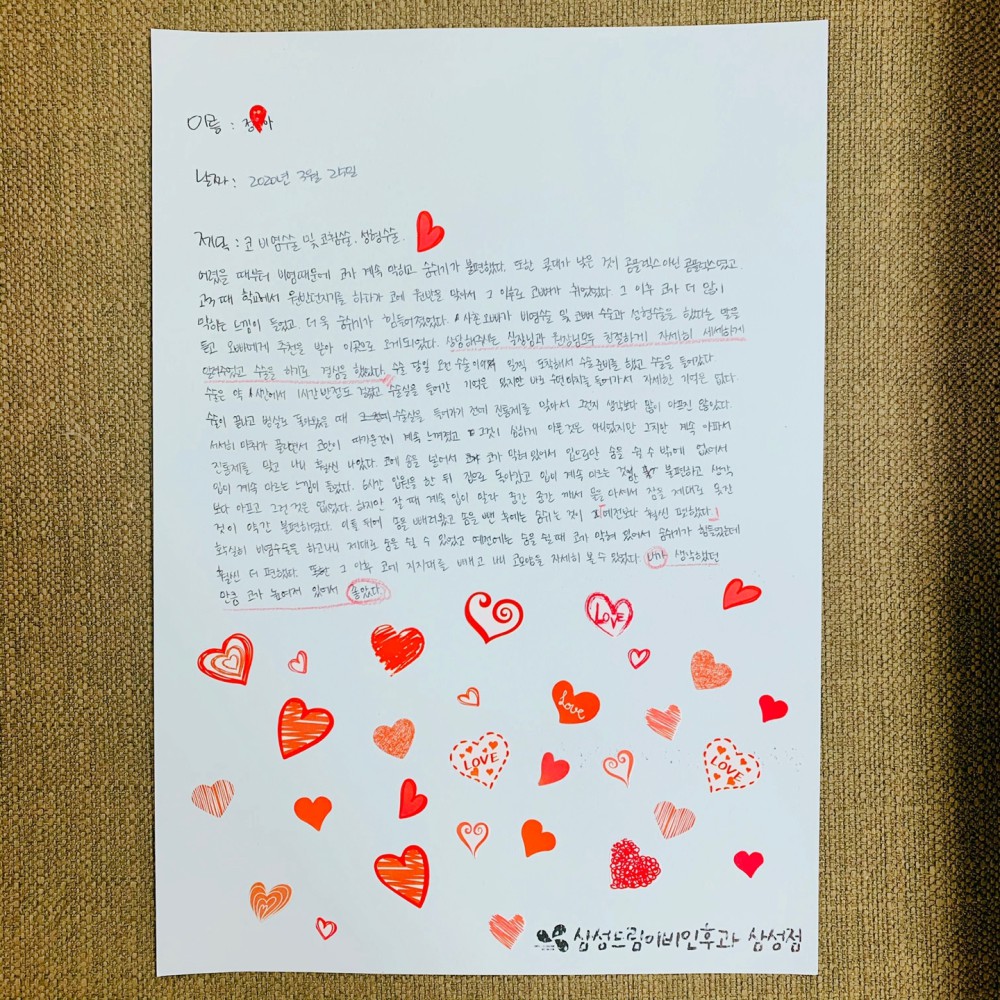 이름 : 정 아
날짜 : 2020년 3월 25일
제목 : 코 비염수술 및 코헙술, 성형수술.
어렸을 때부터 비염때문에 코가 계속 막히고 숨쉬기가 불편했다. 또한 콧대가 낮은 것이 콤플렉스 아닌 콤플렉스였고.
고3때 학교에서 원반던지기를 하다가 코에 원반을 맞아서 그 이후로 코뼈가 휘었었다. 그 이후 코가 더 많이
막히는 느낌이 들었고. 더욱 숨쉬기가 힘들어졌었다. 사촌오빠가 비염수술 및 코뼈 수술과 성형수술을 했다는 말을
듣고 오빠에게 추천을 받아 이곳으로 오게되었다. 상담해주는 실장님과 원장님모두 친절하게 자세히 세세하게
알려주었고 수술을 하기로 결심을 했었다. 수술 당일 1번 수술이여서 일찍 도착해서 수술준비를 했고 수술을 들어갔다
수술은 약 1시간에서 1시간반정도 걸렸고 수술실을 들어간 기억은 있지만 나는 수면마취를 들어가서 자세한 기억은 없다
수술이 끝나고 병실로 돌아왔을 때 수술실을 들어가기 전에 진통제를 맞아서 그런지 생각보다 많이 아프진 않았다.
서서히 마취가 풀리면서 코안이 따가운것이 계속 느껴졌고 그것이 심하게 아픈 것은 아니었지만 그치만 계속 아파서
진통제를 맞고 나니 훨씬 나았다. 코에 솜을 넣어서 코가 막혀있어서 입으로만 숨을 쉴 수 밖에 없어서
입이 계속 마르는 느낌이 들었다. 6시간 입원을 한 뒤 집으로 돌아갔고 입이 계속 마르는 것만 불편하고 생각
보다 아프고 그런 것은 없었다. 하지만 잘 때 계속 입이 말라 중간 중간 깨서 물을 마셔서 잠을 제대로 못잔
것이 약간 불편하였다. 이틀 뒤에 솜을 빼러왔고 솜을 뺀 후에는 숨쉬는 것이 예전보다 훨씬 편했다!
확실히 비염수술을 하고나니 제대로 숨을 쉴 수 있었고 예전에는 숨을 쉴때 코가 막혀 있어서 숨쉬기가 힘들었는데
훨씬 더 편했다. 또한 그 이후 코에 지지대를 빼고 내 코모양을 자세히 볼 수 있었다. 내가 생각했던
만큼 코가 높여져 있어서 좋았다
LOVE
Love
LOVE
LOVE
삼성드림이비인후과 삼성점